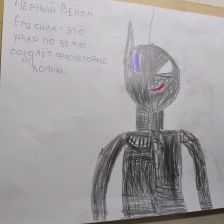 Чёрный Веном
Его сила - это
удар по земле
создаёт фиолетовые
волны.